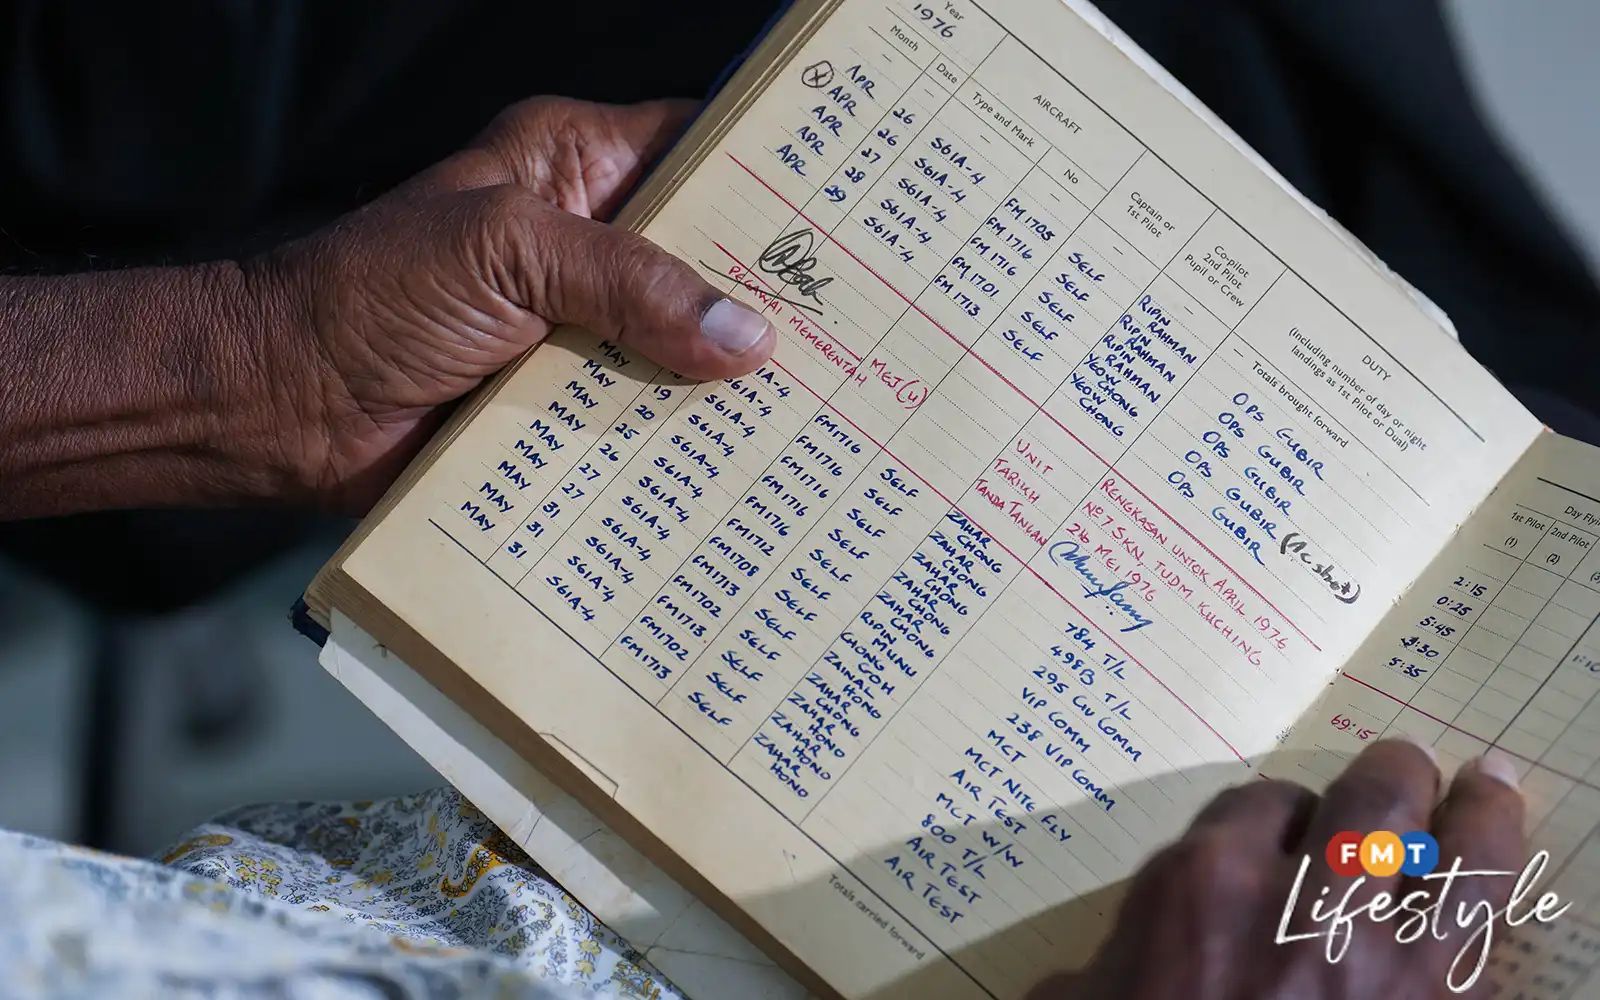 Year
1976
AIRCRAFT
Month
Date
Type and Mark
No
Captain or
1st Pilot
Co-pilot
2nd Pilot
Pupil or Crew
DUTY
(Including number of day or night
landings as 1st Pilot or Dual)
Totals brought forward
APR 26 S61A-4 FM1705 SELF RIPIN RAHMAN OPS GUBIR 2:15
(X) APR 26 S61A-4 FM1716 SELF RIPIN RAHMAN OPS GUBIR 0:25
APR 27 S61A-4 FM1716 SELF RIPIN RAHMAN OPS GUBIR 5:45
APR 28 S61A-4 FM1701 SELF YEOW CHONG OPS GUBIR 3:30
APR 29 S61A-4 FM1713 SELF YEOW CHONG OPS GUBIR (A/C shot) 5:35
RENGKASAN UNTUK APRIL 1976 69:15
UNIT No 7 SKN, TUDM KUCHING
TARIKH 26 MEI 1976
TANDATANGAN
PEGAWAI MEMERENTAH MEJ(U)
MAY
MAY 19
MAY 20
MAY 25
MAY 26
MAY 27
MAY 27
MAY 31
MAY 31
31
S61A-4
S61A-4
S61A-4
S61A-4
S61A-4
S61A-4
S61A-4
S61A-4
S61A-4
S61A-4
FM1716
FM1716
FM1716
FM1716
FM1712
FM1708
FM1713
FM1702
FM1713
FM1702
FM1713
SELF
SELF
SELF
SELF
SELF
SELF
SELF
SELF
SELF
SELF
SELF
ZAHAR CHONG
ZAHAR CHONG
ZAHAR CHONG
ZAHAR CHONG
RIPIN MUNU
CHONG GOH
ZAINAL HONO
ZAHAR CHONG
ZAHAR HONO
ZAHAR HONO
ZAHAR HONO
784 T/L
498B T/L
295 CIV COMM
VIP COMM
238 VIP COMM
MCT
MCT NITE FLY
AIR TEST
MCT W/W
800 T/L
AIR TEST
AIR TEST
Totals carried forward
Day Flying
1st Pilot
(1)
2nd Pilot
(2)
FMT
Lifestyle